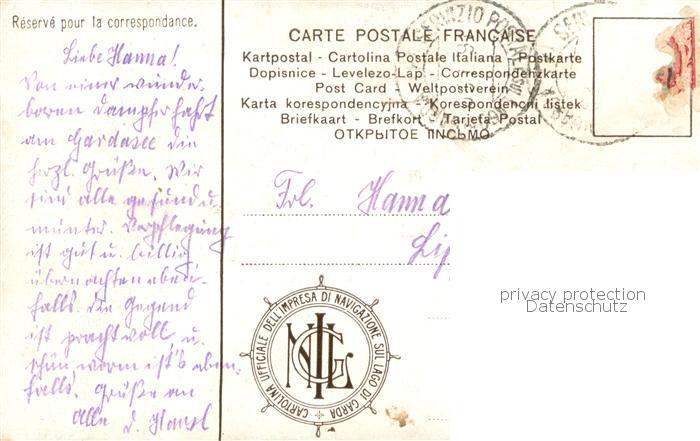 Réservé pour la correspondance.
Liebe Hanna!
Von einer wunder-
baren Dampferfahrt
am Gardasee die
herzl. Grüße. Wir
sind alle gesund u.
munter. Verpflegung
ist gut u. billig
übernachten eben-
falls. Die Gegend
ist prachtvoll, u.
schön warm ist's eben-
falls. Grüße an
Alle d. Hansl
CARTE POSTALE FRANÇAISE
Kartpostal - Cartolina Postale Italiana - Postkarte
Dopisnice - Levelezo-Lap - Correspondenzkarte
Post Card - Weltpostverein
Karta korespondencyjna - Korespondencni listek
Briefkaart - Brefkort - Tarjeta Postal
ОТКРЫТОЕ ПИСЬМО
SERVIZIO POSTALE
Frl. Hanna
Lip
CARTOLINA UFFICIALE DELL'IMPRESA DI NAVIGAZIONE SUL LAGO DI GARDA
privacy protection
Datenschutz